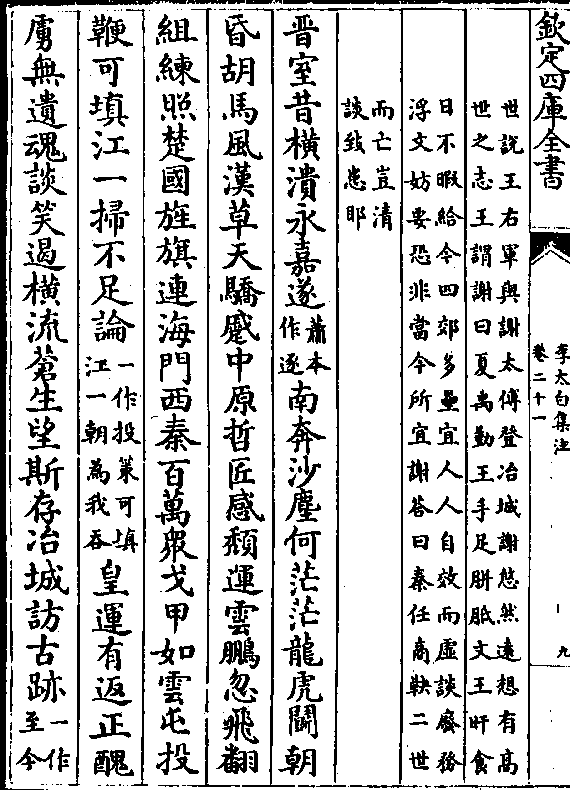 欽定四庫全書
李太白集注
卷二十一
九
世説王右軍與謝太傅登冶城謝悠然遠想有髙
世之志王謂謝曰夏禹勤王手足胼胝文王旰食
日不暇給今四郊多壘宜人人自效而虛談廢務
浮文妨要恐非當今所宜謝答曰秦任商鞅二世
而亡豈清
談致患耶
晉室昔橫潰永嘉遂蕭本作逐南奔沙塵何茫茫龍虎鬭朝
昏胡馬風漢草天驕蹙中原哲匠感頽運雲鵬忽飛翻
組練照楚國旌旗連海門西秦百萬衆戈甲如雲屯投
鞭可填江一掃不足論一作投策可填江一朝為我吞皇運有返正醜
虜無遺魂談笑遏橫流蒼生望斯存冶城訪古跡一作至今